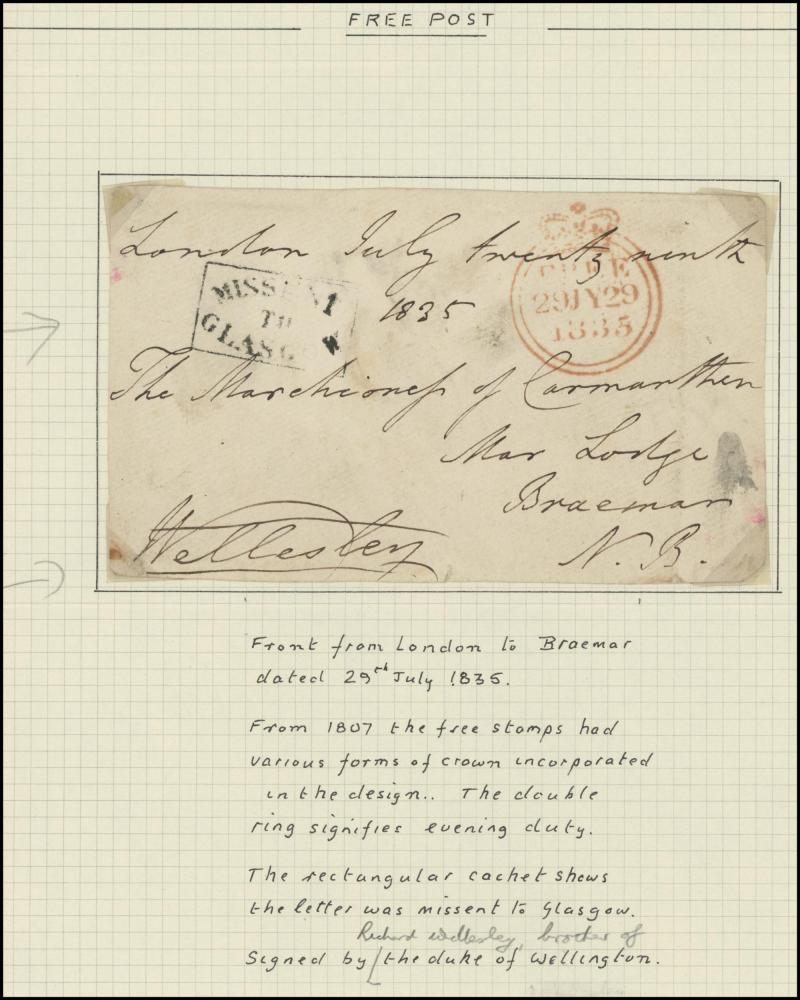 FREE POST
London July twenty ninth
1835
MISSENT
TO
GLASGOW
FREE
29JY29
1835
The Marchioness of Carmarthen
Mar Lodge
Braemar
Wellesley
N. B.
Front from London to Braemar
dated 29th July 1835.
From 1807 the free stamps had
various forms of crown incorporated
in the design.. The double
ring signifies evening duty.
The rectangular cachet shows
the letter was missent to Glasgow.
Richard Wellesley, brother of
Signed by / the duke of Wellington.